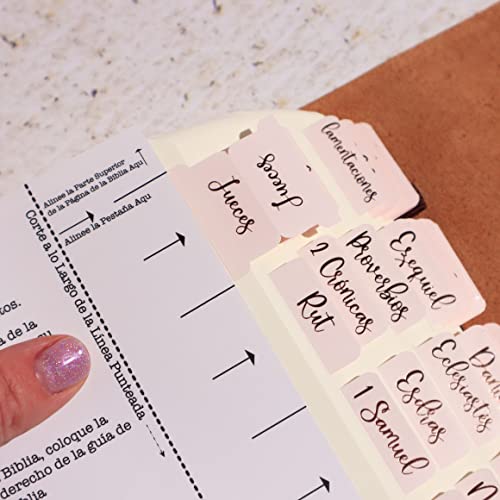 Alinee la Parte Superior
de la Página de la Biblia Aqu
Alinee la Pestaña Aqu
Corte a lo Largo de la Línea Punteada
tos.
a de la
de la
Biblia, coloque la
derecho de la guía de
Jueces
Jueces
lamentaciones
Rut
2 Crónicas
Proverbios
Ezequiel
1 Samuel
Esdras
Eclesiastés
Dani